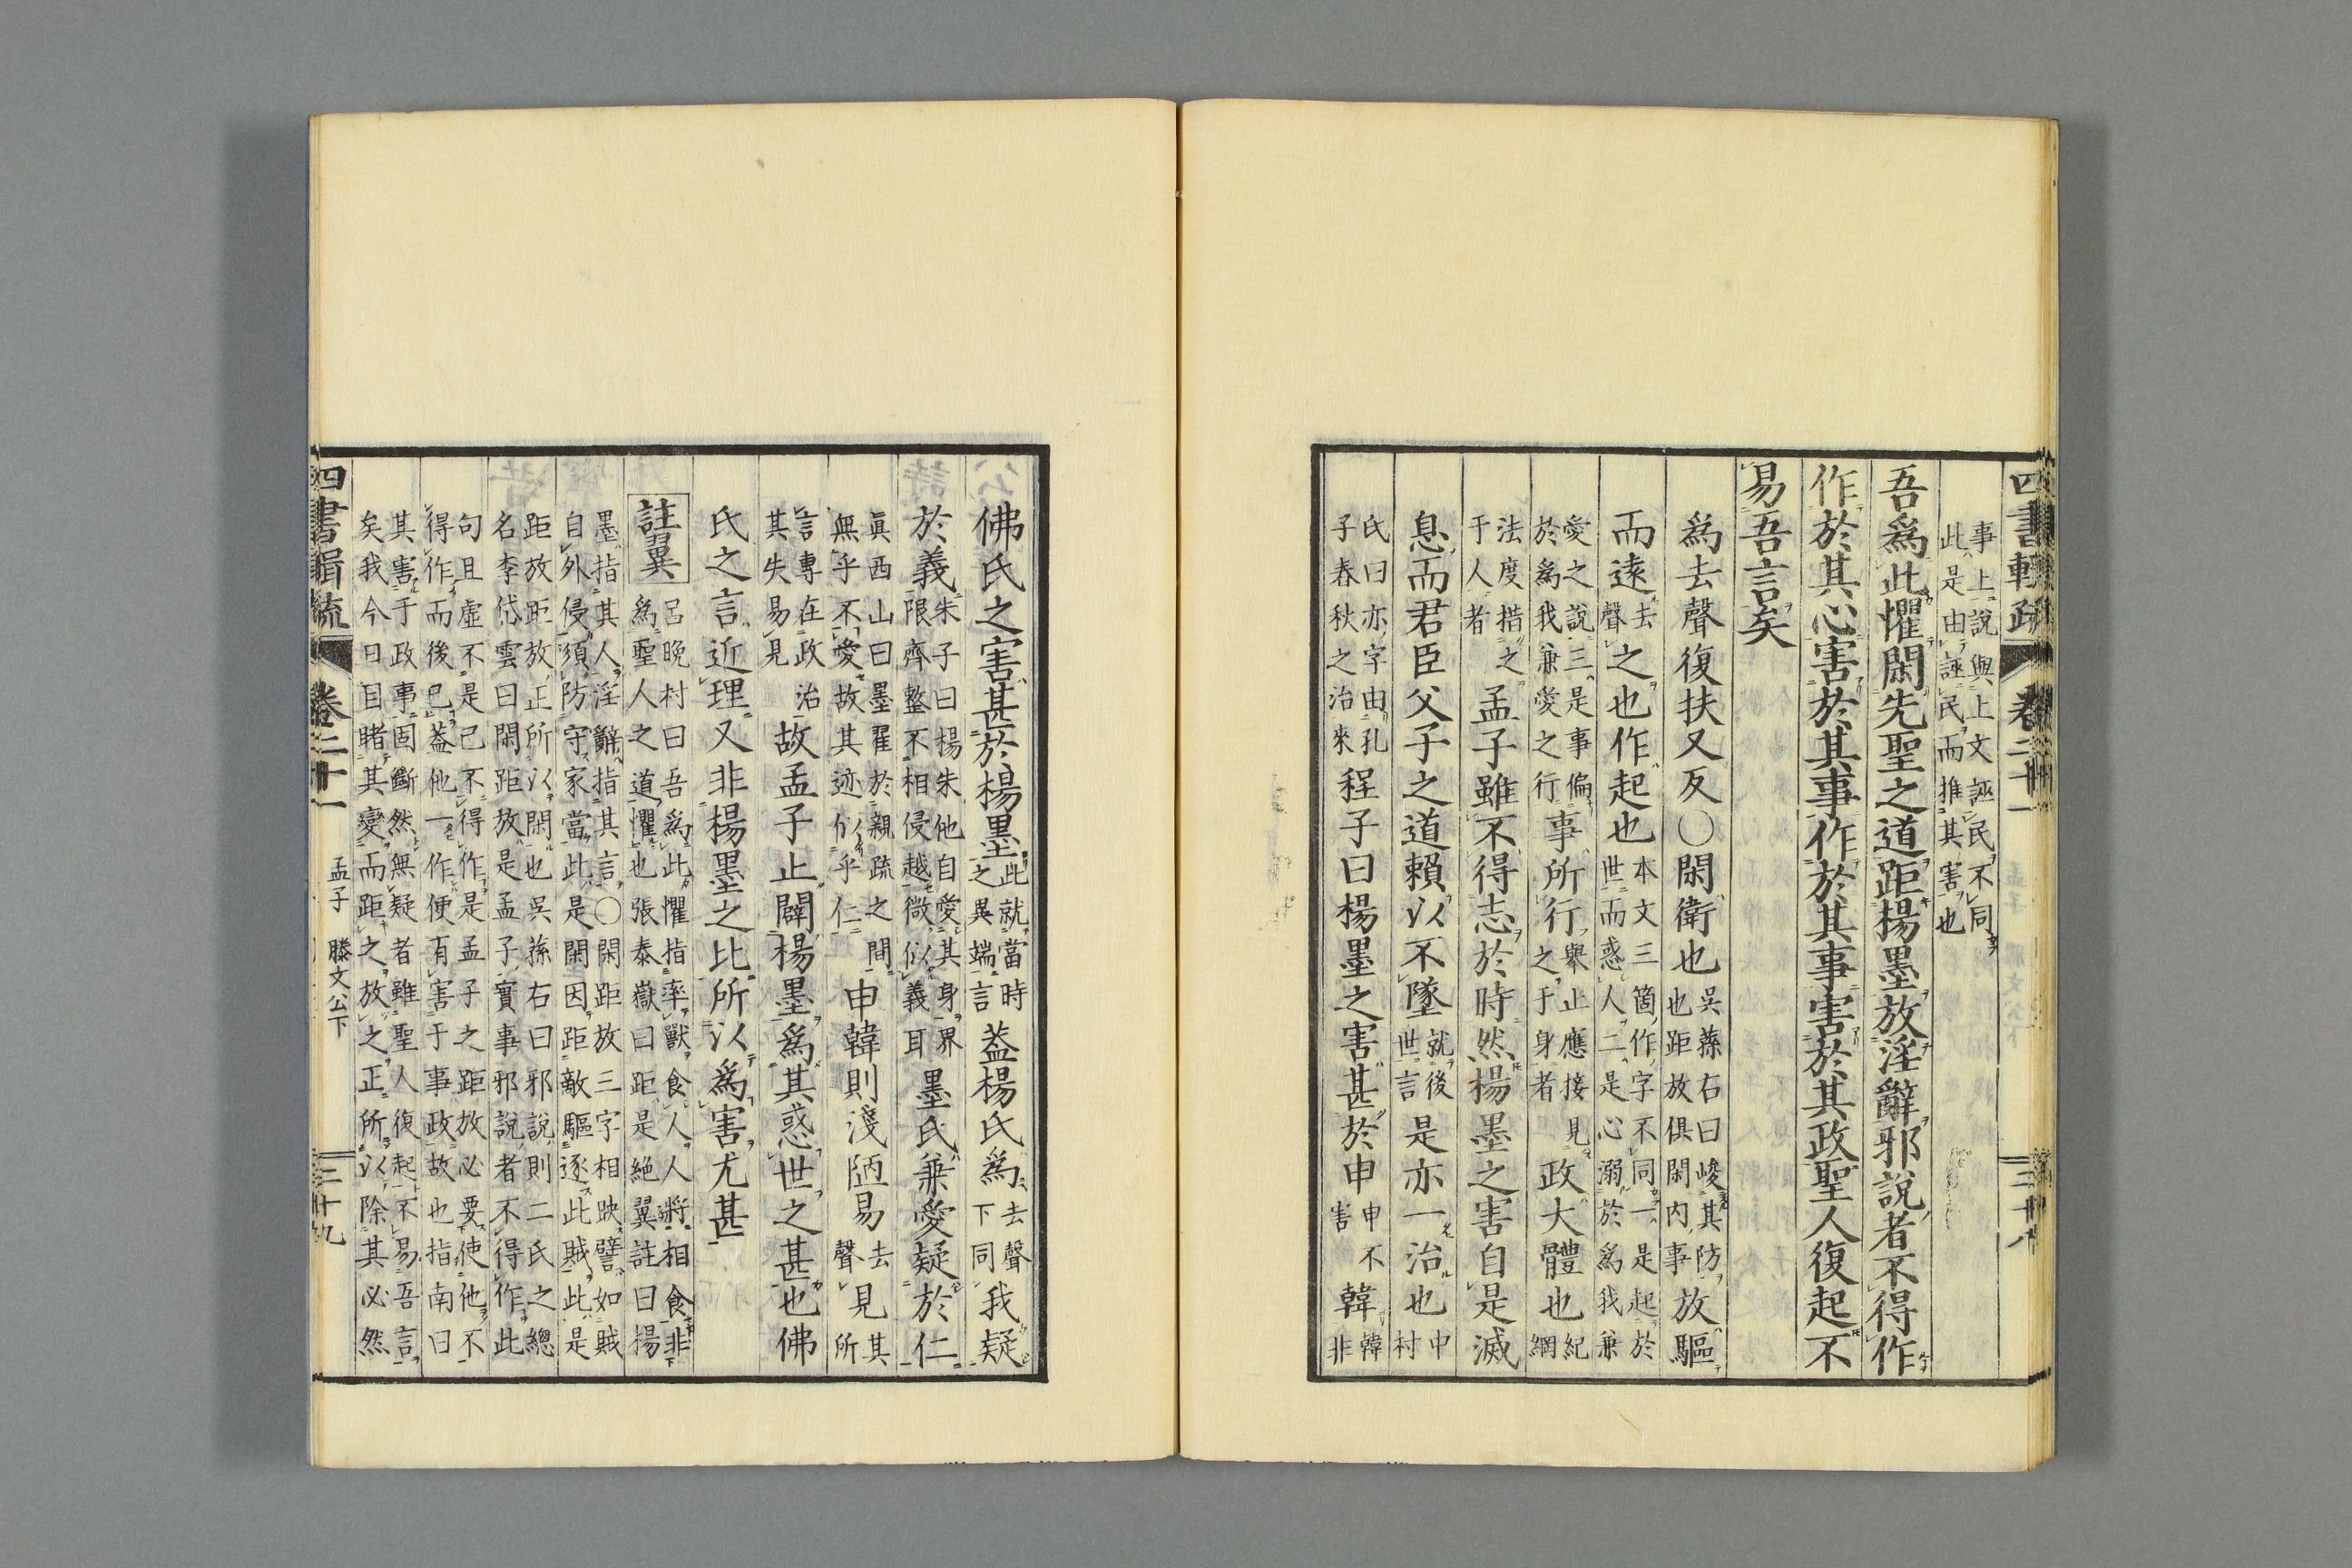 四書輯疏 卷二十一 三十八
事上說與上文誣民不同
此是由誣民而推其害也
吾爲此懼閑先聖之道距楊墨放淫辭邪說者不得作
作於其心害於其事作於其事害於其政聖人復起不
易吾言矣
爲去聲復扶又反○閑衛也吳蓀右曰峻其防也距放俱閑内事放驅
而遠去聲之也作起也本文三箇作字不同一是起於世而惑人二是心溺於爲我兼
愛之說三是事偏於爲我兼愛之行事所行舉止應接見之于身者政大體也紀綱
法度措之于人者孟子雖不得志於時然楊墨之害自是滅
息而君臣父子之道賴以不墜就後世言是亦一治也中村
氏曰亦字由孔子春秋之治來程子曰楊墨之害甚於申申不害韓韓非
佛氏之害甚於楊墨此就當時之異端言蓋楊氏爲去聲下同我疑
於義朱子曰楊朱他自愛其身界限齊整不相侵越微似義耳墨氏兼愛疑於仁
眞西山曰墨翟於親疏之間無乎不愛故其迹似乎仁申韓則淺陋易去聲見其所
言專在政治其失易見故孟子止闢楊墨爲其惑世之甚也佛
氏之言近理又非楊墨之比所以爲害尤甚
註翼 呂晩村曰吾爲此懼指率獸食人人將相食非爲聖人之道懼也張泰嶽曰距是絶翼註曰楊
墨指其人淫辭指其言○閑距放三字相映譬如賊自外侵須防守家當此是閑因距敵驅逐此賊此是
距放距放正所以閑也吳蓀右曰邪說則二氏之總名李岱雲曰閑距放是孟子實事邪說者不得作此
句且虛不是已不得作是孟子之距放必要使他不得作而後已蓋他一作便有害于事政故也指南曰
其害于政事固斷然無疑者雖聖人復起不易吾言矣我今日目睹其變而距之放之正所以除其必然
四書輯疏 卷二十一 孟子 滕文公下 三十九